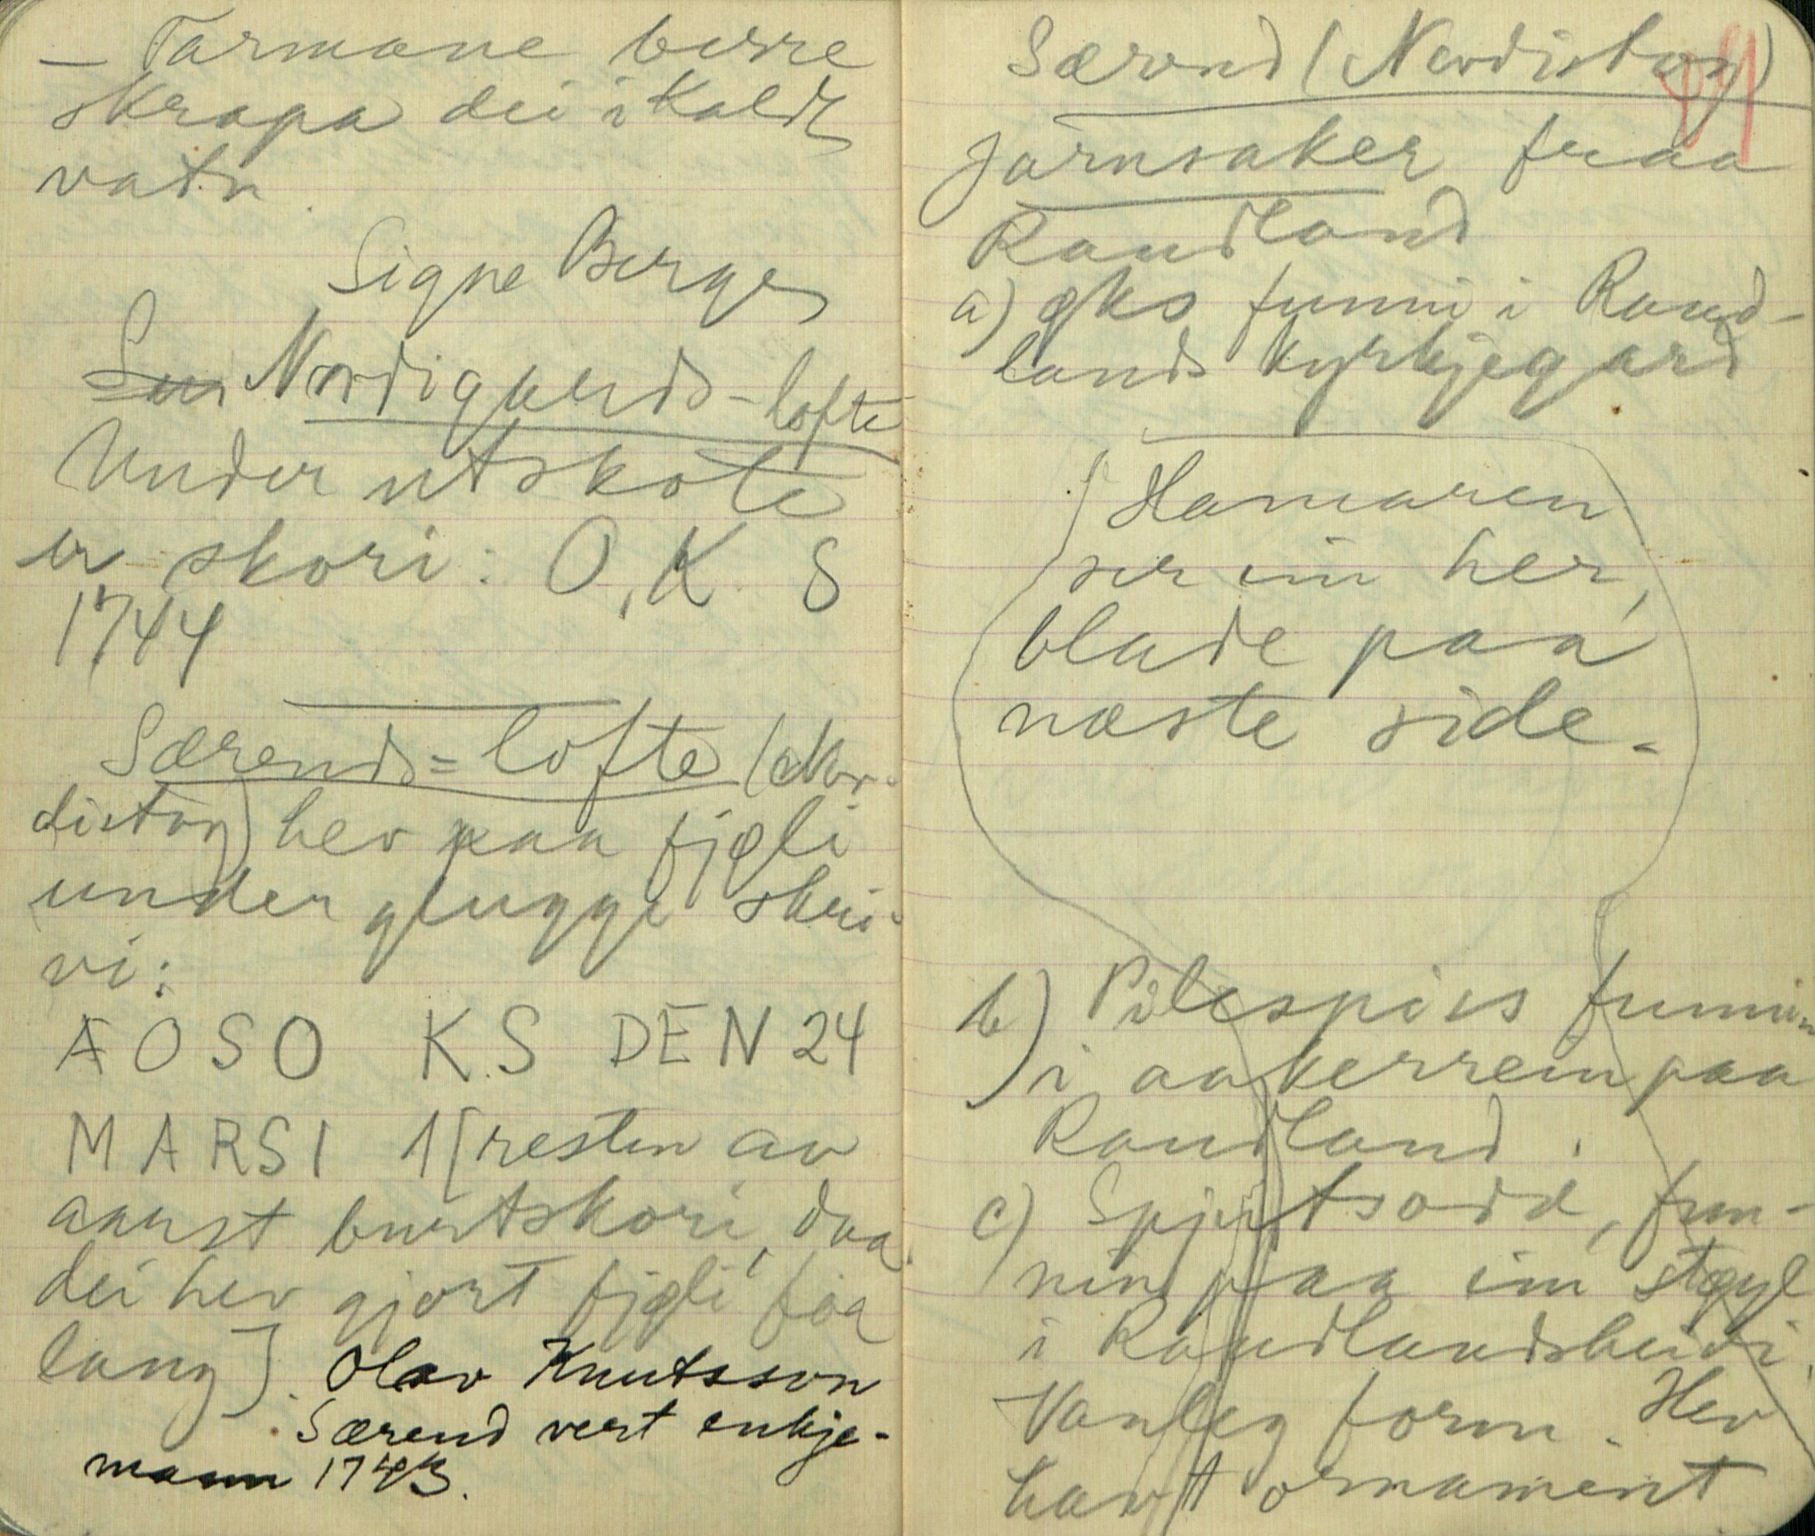 – Tarmane berre
skrapa dei i kaldt
vatn.
Signe Berge
Nordigards-lofte
Under utskote
er skori: O, K S
1744
Særends-lofte (Nor-
distog) hev paa fjøli
under glugge skri-
vi:
AOSO KS DEN 24
MARSI 1[resten av
aarst burtskori, daa
dei hev gjort fjøli for
lang]. Olav Knutsson
Særend vert enkje-
mann 1743.
Særend (Nordistog)
Jarnsaker fraa
Raudland
a) øks funni i Raud-
lands kyrkjegard
Hamaren
ser ein her,
blade paa
næste side.
b) Pilespiss funnin
i aakerrein paa
Raudland.
c) Spjutsodd, fun-
nin paa ein støyl
i Raudlandsheidi.
Vanleg form. Hev
havt ornament